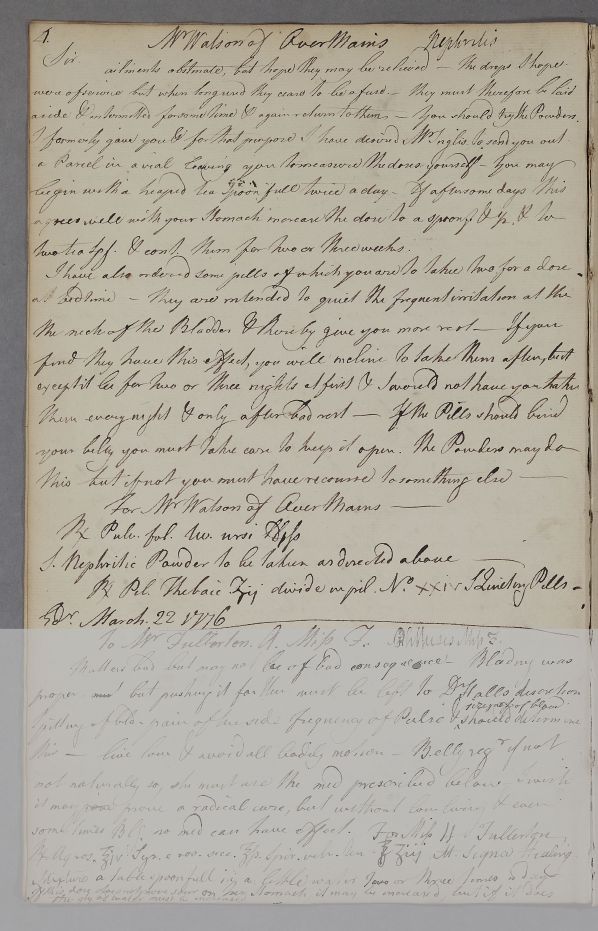 4.
Mr Watson of Aver Mains Nephritis
Sir.
ailments obstinate, but hope they may be relieved — the drops I hope
were of service but when long used they cease to be of use — they must therefore be laid
aside & intermitted for some time & again return to them — You should try the Powders
I formerly gave you & for that purpose I have desired Mr Inglis to send you out
a Parcel in a vial leaving you to measure the doses yourself — You may
begin with a heaped tea Spoonfull twice a day — If after some days this
agrees well with your Stomach increase the dose to a spoonf & ½ & to
two tea Spf. & cont. them for two or three weeks.
I have also ordered some pills of which you are to take two for a dose
at Bed time — they are intended to quiet the frequent irritation at the
the neck of the Bladder & thereby give you more rest — If you
find they have this effect, you will incline to take them often, but
except it be for two or three nights at first I would not have you take
them every night & only after bad rest — If the Pills should bind
your belly you must take care to keep it open. The Powders may do
this but if not you must have recourse to something else —
For Mr Watson of Aver Mains —
Rx Pulv. fol. Uv. ursi
S. Nephritic Powder to be taken as directed above —
Rx Pil. Thebaic ʒij divide in pil. No. xxiv S. Quieting Pills —
Edr. March. 22 1776
To Mrs Fullerton. A. Miss F. Phthisis
Matters bad but may not be of bad consequence — Blading was
proper but pushing it farther must be left to Dr Halls discretion
Spitting of blood pain of the side frequency of Pulse & should determine
this — live low & avoid all bodily motion — Belly regr if not
not naturally so, she must use the med prescribed before I wish
it may prove a radical cure, but without
sometimes no med can have effect. For Miss Fullerton
Rx Aq. ros. M. Signa Healing
Mixture a table spoonfull in a little water two or three times a day
If this dose does not on her Stomach it may be increased but if it does
the of water must be increased